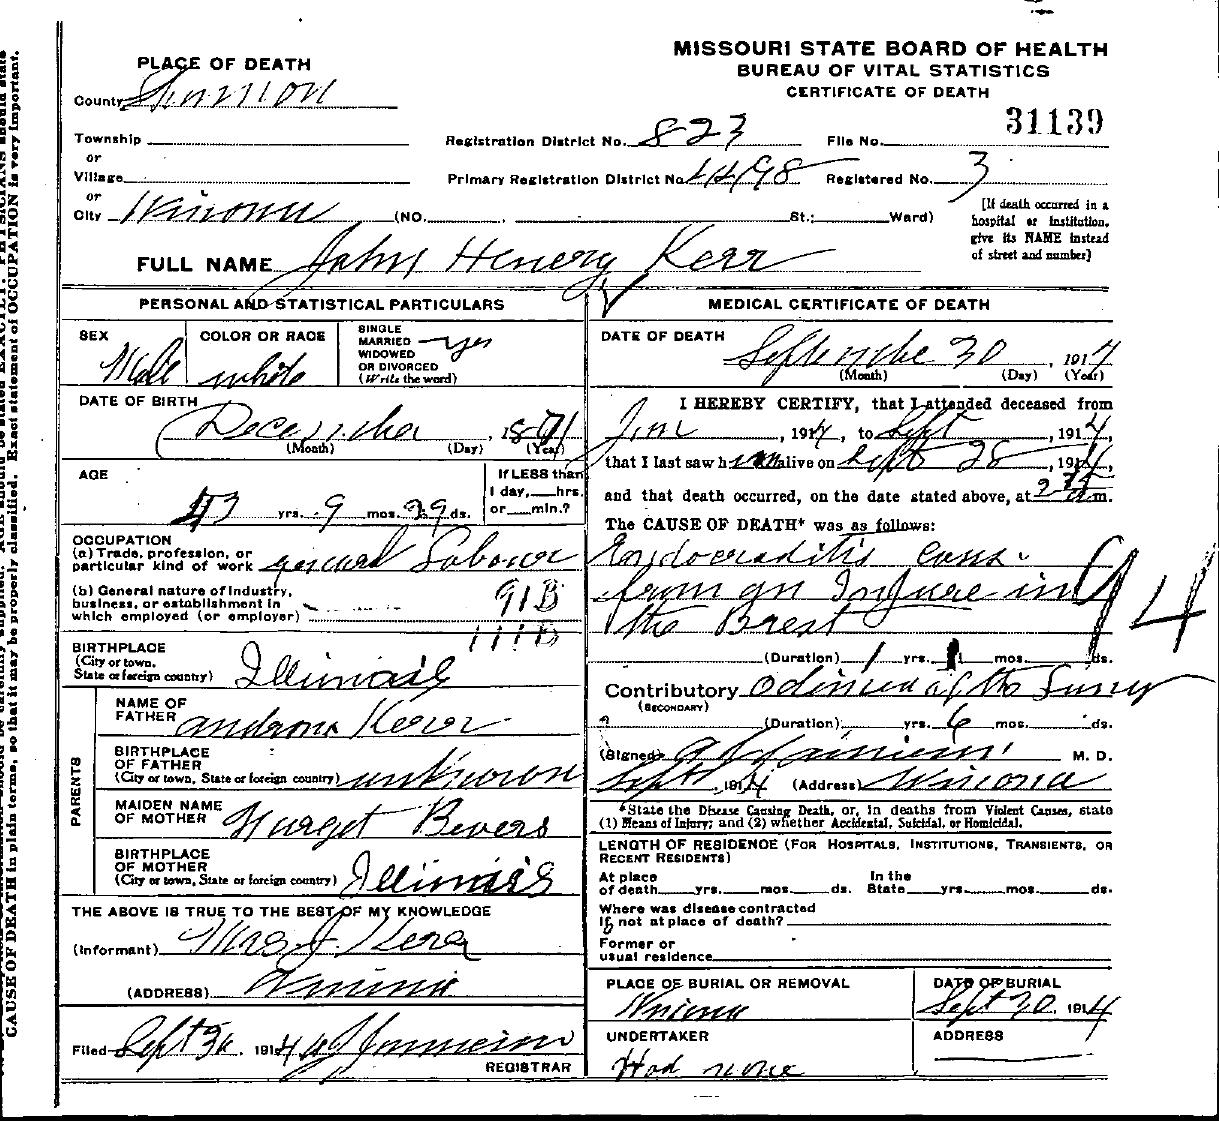 MISSOURI STATE BOARD OF HEALTH
BUREAU OF VITAL STATISTICS
CERTIFICATE OF DEATH
31139
PLACE OF DEATH
County Shannon
Township
or
Village
or
City Winona (NO. , St.; Ward)
Registration District No. 823 File No.
Primary Registration District No 4498 Registered No. 3
[If death occurred in a
hospital or institution,
give its NAME instead
of street and number]
FULL NAME John Henery Kerr
PERSONAL AND STATISTICAL PARTICULARS
SEX
Male
COLOR OR RACE
white
SINGLE
MARRIED yes
WIDOWED
OR DIVORCED
(Write the word)
DATE OF BIRTH
December , 1871
(Month) (Day) (Year)
AGE
43 yrs. 9 mos. 29 ds.
If LESS than
1 day, hrs.
or min.?
OCCUPATION
(a) Trade, profession, or
particular kind of work general Laborer
(b) General nature of industry,
business, or establishment in
which employed (or employer)
91B
111B
BIRTHPLACE
(City or town,
State or foreign country) Illinois
PARENTS
NAME OF
FATHER Kerr
BIRTHPLACE
OF FATHER
(City or town, State or foreign country) unknown
MAIDEN NAME
OF MOTHER Marget Bevers
BIRTHPLACE
OF MOTHER
(City or town, State or foreign country) Illinois
THE ABOVE IS TRUE TO THE BEST OF MY KNOWLEDGE
(Informant) Mrs J. Kerr
(ADDRESS) Winona
Filed Sept 30, 1914
REGISTRAR
MEDICAL CERTIFICATE OF DEATH
DATE OF DEATH
September 30 , 1914
(Month) (Day) (Year)
I HEREBY CERTIFY, that I attended deceased from
, 1914, to Sept , 1914,
that I last saw him alive on Sept 28 , 1914,
and that death occurred, on the date stated above, at m.
The CAUSE OF DEATH* was as follows:
Endocraditis caus
from an Injure in
the Brest
94
(Duration) 1 yrs. mos. ds.
Contributory of the
(SECONDARY)
(Duration) yrs. 6 mos. ds.
(Signed) M. D.
Sept , 1914 (Address) Winona
*State the Disease Causing Death, or, in deaths from Violent Causes, state
(1) Means of Injury; and (2) whether Accidental, Suicidal, or Homicidal.
LENGTH OF RESIDENCE (FOR HOSPITALS, INSTITUTIONS, TRANSIENTS, OR
RECENT RESIDENTS)
At place In the
of death yrs. mos. ds. State yrs. mos. ds.
Where was disease contracted
If not at place of death?
Former or
usual residence
PLACE OF BURIAL OR REMOVAL
Winona
DATE OF BURIAL
Sept 30 1914
UNDERTAKER
Had none
ADDRESS
CAUSE OF DEATH in plain terms, so that it may be properly classified. Exact statement of OCCUPATION is very important.